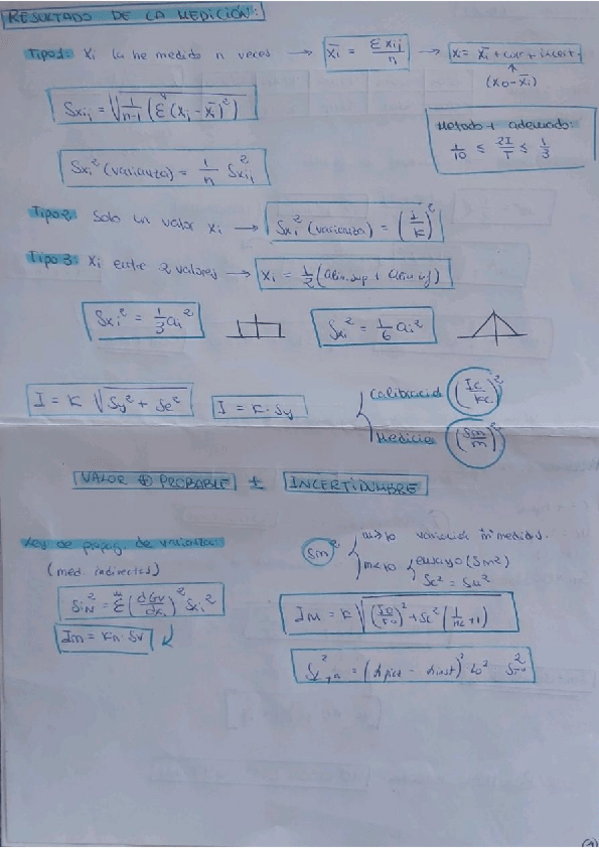 RESULTADO DE LA MEDICIÓN:
Tipo 1: Xi la he medido n veces → X̄i = ΣXij/n → Xi = X̄i + corr + incert.
(X0 - X̄i)
Sxij = √(1/(n-1) (Σ(Xj - X̄i)²))
Metodo + adecuado:
1/10 ≤ 2I/T ≤ 1/3
Sxi² (varianza) = 1/n Sxij²
Tipo 2 Solo un valor Xi → Sxi² (varianza) = (I/K)²
Tipo 3: Xi entre 2 valores → Xi = 1/2 (alim.sup + alim.inf)
Sxi² = 1/3 ai²
Sxi² = 1/6 ai²
I = K √(Sy² + Se²)
I = K · Sy
Calibración (Ic/Kc)²
Medición (Sm/m)²
VALOR ⊕ PROBABLE ± INCERTIDUMBRE
Ley de propag. de varianza:
(med. indirectas)
Sm²
m>10 varianza "m" medidas.
m<10
ensayo (Sm²)
Sc² = Sm²
Im = Kn · Sv